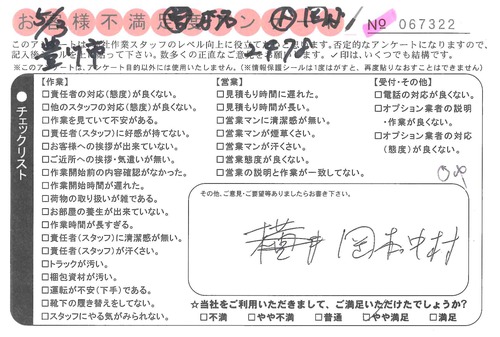 お客様不満足度アンケート
No 067322
5/3
記入後、
※このアンケートは、アンケート目的以外には使用いたしません。(※情報保護シールは1度はがすと、再度貼りなおすことはできません)
チェックリスト
【作業】
□責任者の対応(態度)が良くない。
□他のスタッフの対応(態度)が良くない。
□作業を見ていて不安がある。
□責任者(スタッフ)に好感が持てない。
□お客様への挨拶が出来ていない。
□ご近所への挨拶・気遣いが無い。
□作業開始前の内容確認がなかった。
□作業開始時間が遅れた。
□荷物の取り扱いが雑である。
□お部屋の養生が出来ていない。
□作業時間が長すぎる。
□責任者(スタッフ)に清潔感が無い。
□責任者(スタッフ)が汗くさい。
□トラックが汚い。
□梱包資材が汚い。
□運転が不安(下手)である。
□靴下の履き替えをしてない。
□スタッフにやる気がみられない。
【営業】
□見積もり時間に遅れた。
□見積もり時間が長い。
□営業マンに清潔感が無い。
□営業マンが煙草くさい。
□営業マンが汗くさい。
□営業態度が良くない。
□営業の説明と作業が一致してない。
【受付・その他】
□電話の対応が良くない。
□オプション業者の説明
・作業が良くない。
□オプション業者の対応
(態度)が良くない。
その他、ご意見・ご要望等ありましたらお書き下さい。
横井 岡本 中村
☆当社をご利用いただきまして、ご満足いただけたでしょうか?
□不満 □やや不満 □普通 □やや満足 □満足